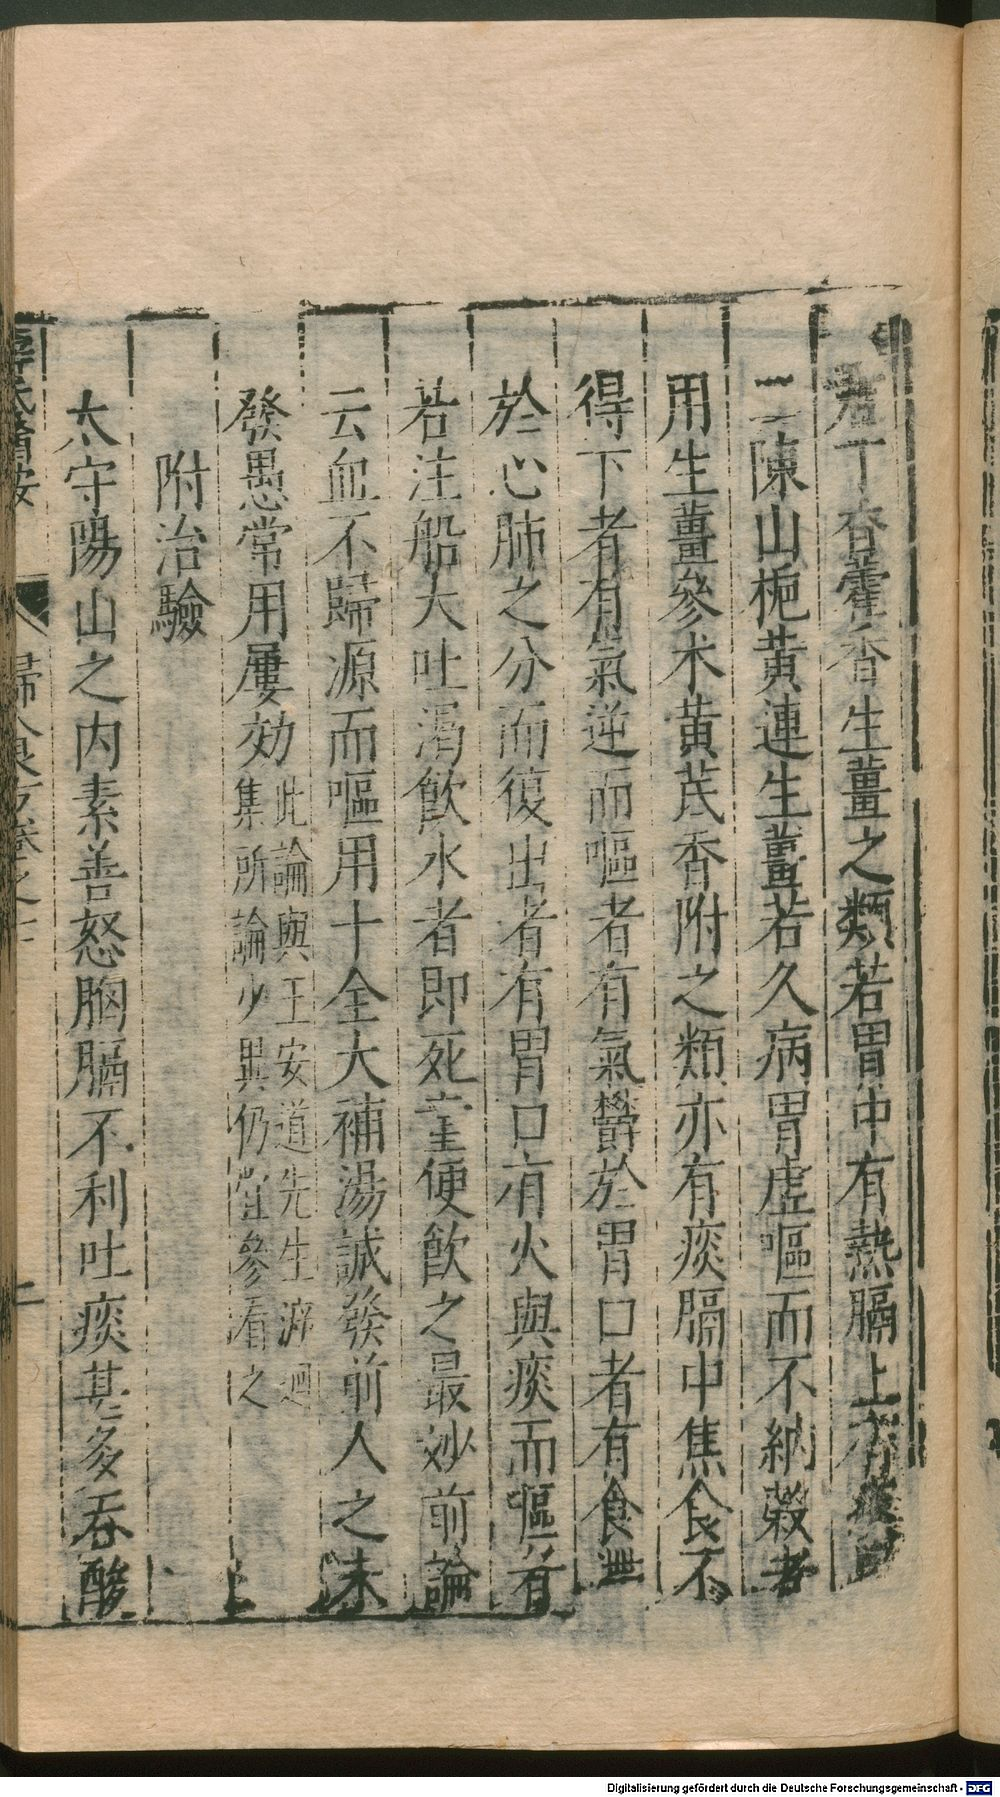 丁香藿香生薑之類若胃中有熱膈上有痰
二陳山梔黃連生薑若久病胃虛嘔而不納穀者
用生薑參朮黃芪香附之類亦有痰膈中焦食不
得下者有氣逆而嘔者有氣鬱於胃口者有食滯
於心肺之分而復出者有胃口有火與痰而嘔者
若注船大吐渴飲水者即死童便飲之最妙前論
云血不歸源而嘔用十全大補湯誠發前人之未
發愚常用屢効此論與王安道先生溯洄
集所論少異仍當參看之
附治驗
太守陽山之內素善怒胸膈不利吐痰甚多吞酸
薛氏醫按
婦人良方卷之七
二
Digitalisierung gefördert durch die Deutsche Forschungsgemeinschaft - DFG